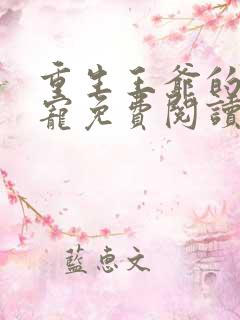 重生王爺的
寵免費閱讀
藍惠文